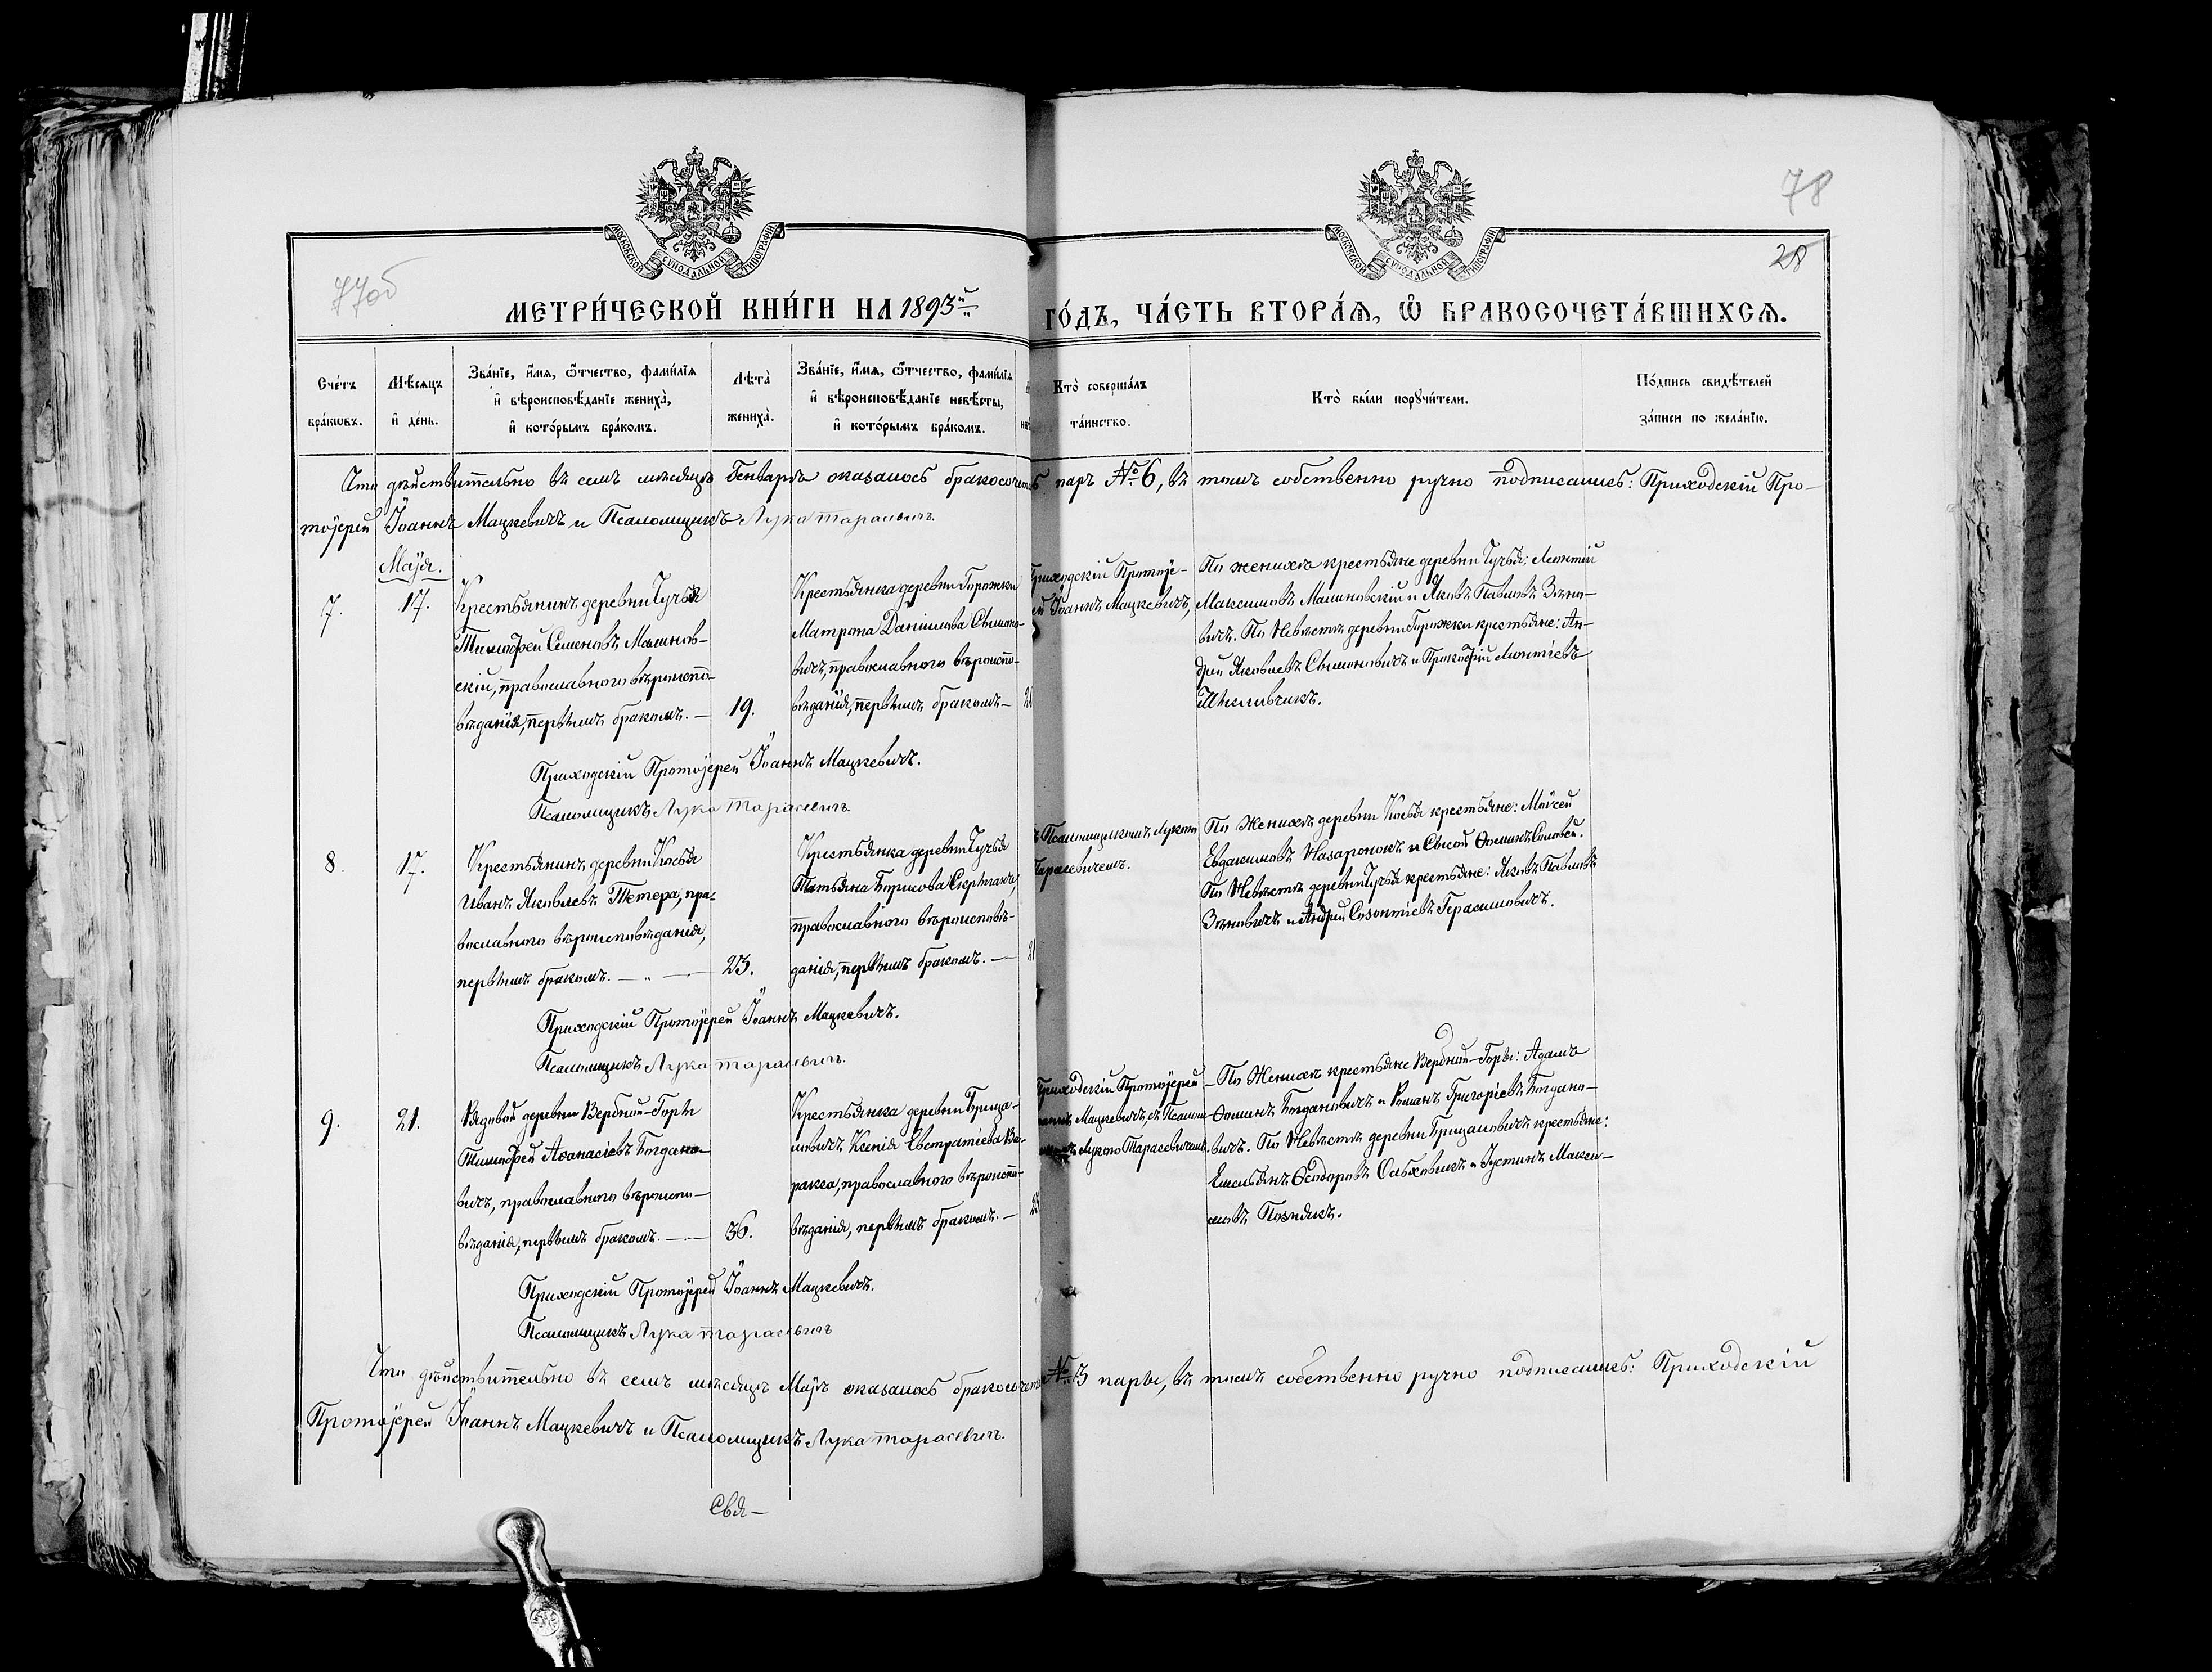 78
28
77об
МОСКОВСКОЙ СѴНОДАЛЬНОЙ ТИПОГРАФІИ
МОСКОВСКОЙ СѴНОДАЛЬНОЙ ТИПОГРАФІИ
МЕТРИ́ЧЕСКОЙ КНИ́ГИ НА 1893й ГО́ДЪ, ЧА́СТЬ ВТОРА́Ѧ, Ѡ БРАКОСОЧЕТА́ВШИХСѦ.
Сче́тъ
бра́кѡвъ.
Мѣ́сяцъ
и де́нь.
Зва́нїе, и́мя, ѻ҆́тчество, фами́лїя
и вѣроисповѣ́данїе жениха̀,
и кото́рымъ бра́комъ.
Лѣта̀
жениха̀.
Зва́нїе, и́мя, ѻ҆́тчество, фами́лїя
и вѣроисповѣ́данїе невѣ́сты,
и кото́рымъ бра́комъ.
Кто̀ соверша́лъ
та́инство.
Кто̀ бы́ли порꙋчи́тели.
По́дпись свидѣ́телей
за́писи по жела́нїю.
Что дѣйствительно въ семъ мѣсяцѣ Генварѣ оказалось паръ № 6, въ томъ собственно ручно подписались: Приходскій Про-
тоіерей Іоаннъ Мацкевичъ и Псаломщикъ Лука Тарасевичъ.
Маія.
7.
17.
Крестьянинъ деревни Гучья
Тимофей Семеновъ Малинов-
скій, православнаго вѣроиспо-
вѣданія, первымъ бракомъ. —
19.
Крестьянка деревни Горожки
Матрона Даніилова
вичъ, православнаго вѣроиспо-
вѣданія, первымъ бракомъ —
Приходскій Протоіе-
рей Іоаннъ Мацкевичъ,
По женихѣ крестьяне деревни Гучья: Леонтій
Максимовъ Малиновскій и Яковъ Павловъ Зѣнко-
вичъ. По Невѣстѣ деревни Горожки крестьяне: Ан-
дрей Яковлевъ и Прокофій Леонтіевъ
Приходскій Протоіерей Іоаннъ Мацкевичъ.
Псаломщикъ Лука Тарасевичъ.
8.
17.
Крестьянинъ деревни
Иванъ Яковлевъ Тетера, пра-
вославнаго вѣроисповѣданія,
первымъ бракомъ. — „ —
23.
Крестьянка деревни Гучья
Татьяна Борисова
православнаго вѣроисповѣ-
данія, первымъ бракомъ. —
21
съ Псаломщикомъ Лукою
Тарасевичемъ.
По Женихѣ деревни крестьяне: Моѵсей
Евдакимовъ и
По Невѣстѣ деревни Гучья крестьяне: Яковъ Павловъ
и Андрей Созонтіевъ Герасимовичъ.
Приходскій Протоіерей Іоаннъ Мацкевичъ.
Псаломщикъ Лука Тарасевичъ.
9.
21.
Рядовой деревни Вербной-Горы
Тимофей Аѳанасіевъ Богдано-
вичъ, православнаго вѣроиспо-
вѣданія, первымъ бракомъ. —
36.
Крестьянка деревни Брица-
ловичъ Ксенія Евстратіева Ва-
ракса, православнаго вѣроиспо-
вѣданія, первымъ бракомъ. —
Приходскій Протоіерей
Іоаннъ Мацкевичъ, съ Псалом-
Лукою Тарасевичемъ.
По Женихѣ крестьяне Вербной-Горы: Адамъ
Ѳоминъ Богдановичъ и Романъ Григоріевъ Богдано-
вичъ. По Невѣстѣ деревни Брицаловичъ крестьяне:
Емельянъ Ѳеодоровъ и Іустинъ Макси-
мовъ Позднякъ.
Приходскій Протоіерей Іоаннъ Мацкевичъ.
Псаломщикъ Лука Тарасевичъ
Что дѣйствительно въ семъ мѣсяцѣ Маіѣ оказалось № 3 пары, въ томъ собственно ручно подписались: Приходскій
Протоіерей Іоаннъ Мацкевичъ и Псаломщикъ Лука Тарасевичъ.
Свя-